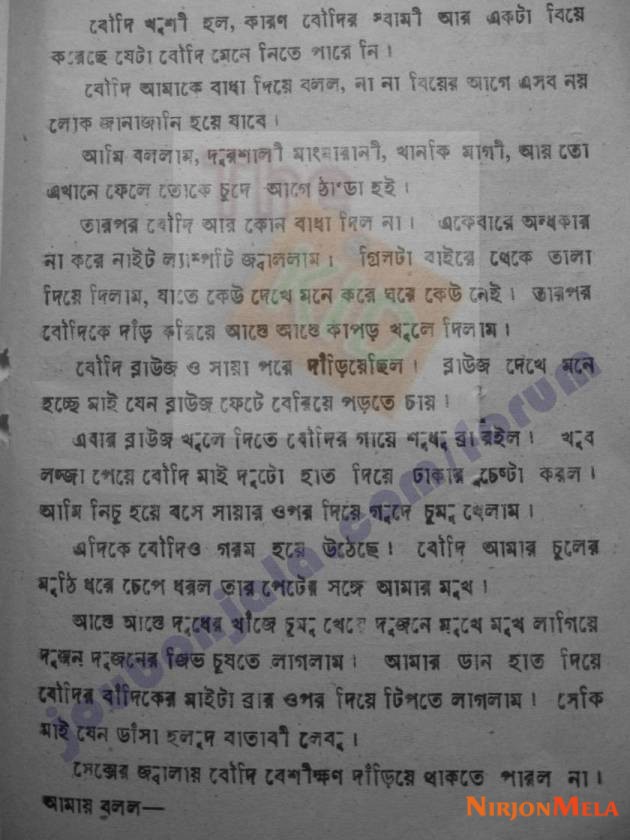 বৌদি খুশী হল, কারণ বৌদির স্বামী আর একটা বিয়ে
করেছে যেটা বৌদি মেনে নিতে পারে নি।
বৌদি আমাকে বাধা দিয়ে বলল, না না বিয়ের আগে এসব নয়
লোক জানাজানি হয়ে যাবে।
আমি বললাম, মাগী, আয় তো
এখানে ফেলে তোকে চুদে আগে ঠাণ্ডা হই।
তারপর বৌদি আর কোন বাধা দিল না। একেবারে অন্ধকার
না করে নাইট ল্যাম্পটি জ্বাললাম। গ্রিলটা বাইরে থেকে তালা
দিয়ে দিলাম, যাতে কেউ দেখে মনে করে ঘরে কেউ নেই। তারপর
বৌদিকে দাঁড় করিয়ে আস্তে আস্তে কাপড় খুলে দিলাম।
বৌদি ব্লাউজ ও সায়া পরে দাঁড়িয়েছিল। ব্লাউজ দেখে মনে
হচ্ছে মাই যেন ব্লাউজ ফেটে বেরিয়ে পড়তে চায়।
এবার ব্লাউজ খুলে দিতে বৌদির গায়ে শুধু ব্রা রইল। খুব
লজ্জা পেয়ে বৌদি মাই দুটো হাত দিয়ে ঢাকার চেষ্টা করল।
আমি নিচু হয়ে বসে সায়ার ওপর দিয়ে গুদে চুমু খেলাম।
এদিকে বৌদিও গরম হয়ে উঠেছে। বৌদি আমার চুলের
মুঠি ধরে চেপে ধরল তার পেটের সঙ্গে আমার মুখ।
আস্তে আস্তে দুধের খাঁজে চুমু খেতে দুজনে মুখে মুখ লাগিয়ে
দুজন দুজনের জিভ চুষতে লাগলাম। আমার ডান হাত দিয়ে
বৌদির বাঁদিকের মাইটা ব্রার ওপর দিয়ে টিপতে লাগলাম। সেকি
মাই যেন ডাঁসা হলুদ বাতাবী লেবু।
সেক্সের জ্বালায় বৌদি বেশীক্ষণ দাঁড়িয়ে থাকতে পারল না।
আমায় বলল—
The Kid
joubonjala.com/forum
NIRJONMELA